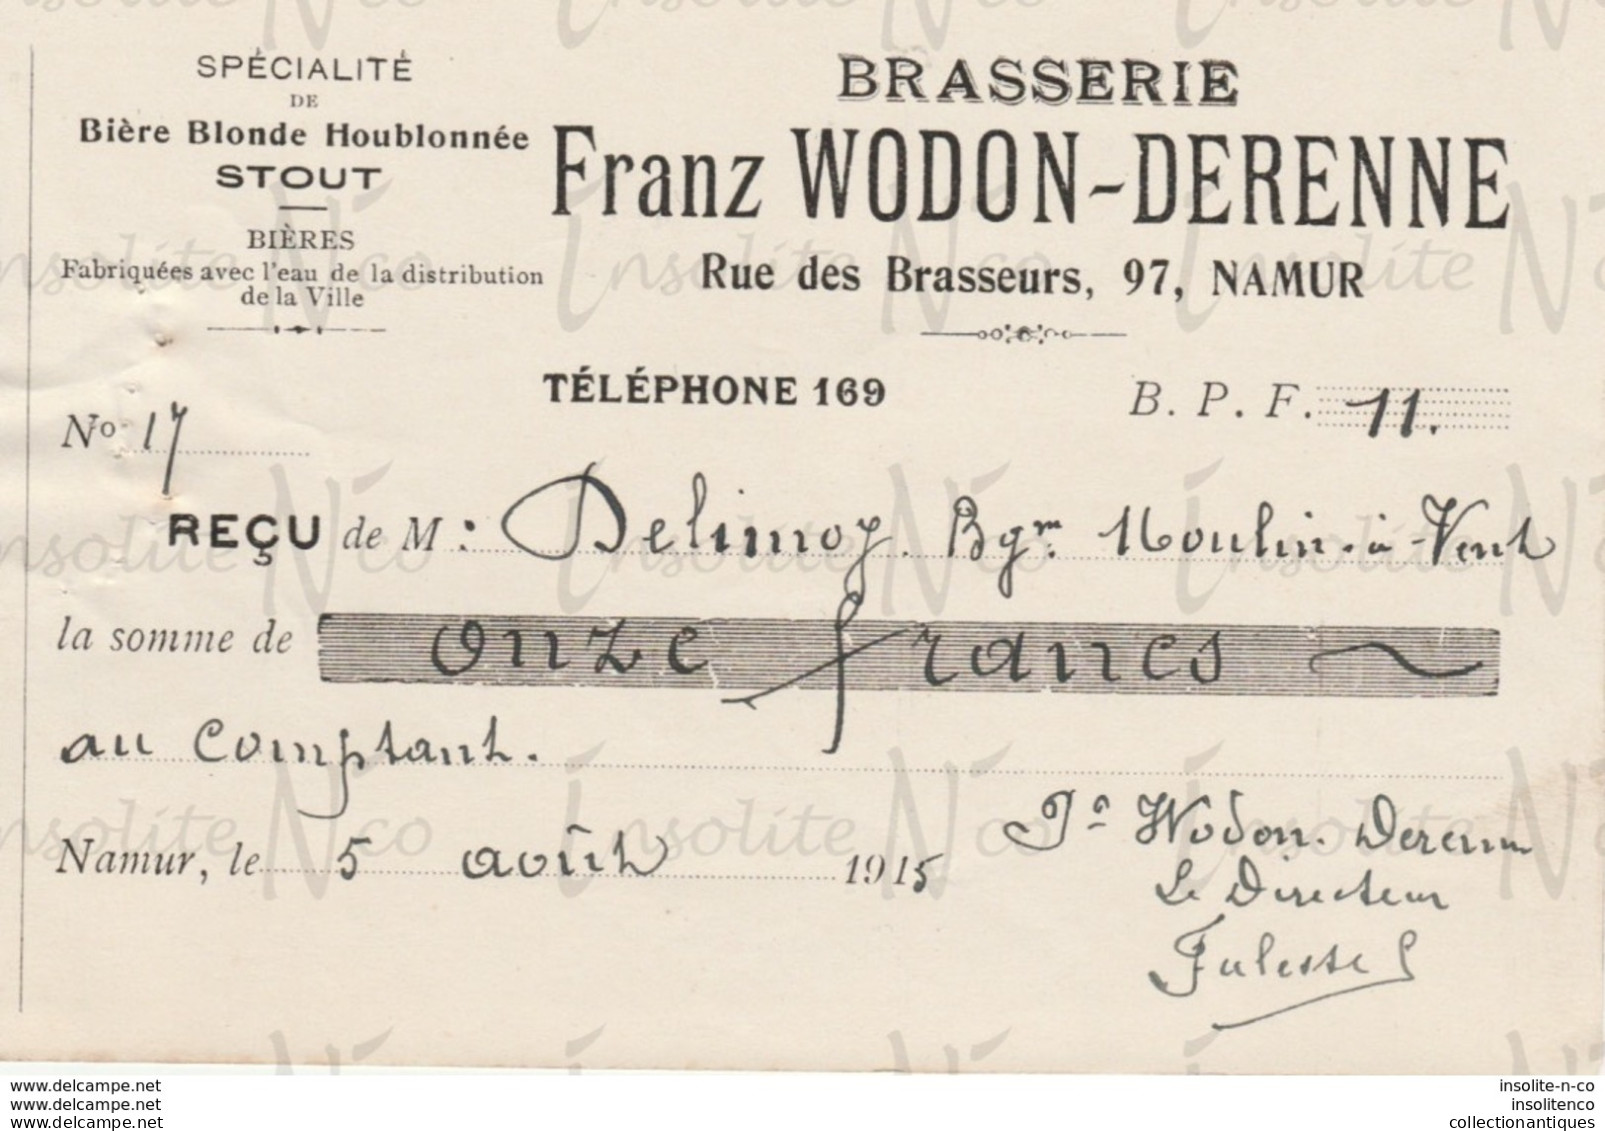 SPÉCIALITÉ
DE
Bière Blonde Houblonnée
STOUT
BIÈRES
Fabriquées avec l'eau de la distribution
de la Ville
BRASSERIE
Franz WODON-DERENNE
Rue des Brasseurs, 97, NAMUR
TÉLÉPHONE 169
B. P. F. 11.
No 17
REÇU de M : Delimoy. Bgm Moulin-à-Vent
la somme de onze francs
au comptant.
Namur, le 5 août 1915
Wodon. Derenne
Le Directeur
www.delcampe.net
www.delcampe.net
www.delcampe.net
insolite-n-co
insolitenco
collectionantiques
Insolite N'co